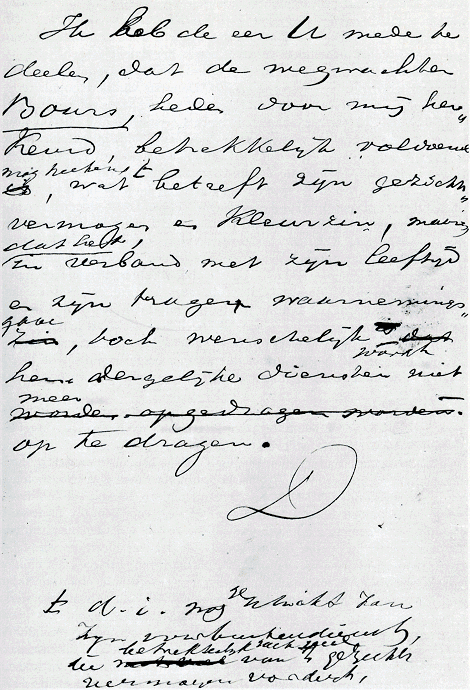 Ik heb de eer U mede te
deelen, dat de wegwachter
Bours, heden door mij her„
keurd, betrekkelijk voldoende
mag heeten t
is, wat betreft zijn gezichts„
vermogen en kleurzin, maar
dat het,
in verband met zijn leeftijd
en zijn tragen waarnemings„
gave
zin, toch wenschelijk is dat
wordt
hem dergelijke diensten niet
meer
worden opgedragen worden.
op te dragen.
D
t d.i. nog geschikt van
zijn
betrekkelijk
die van 't gezichts
vermogen vordert,